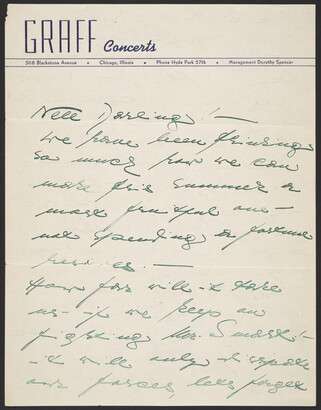 GRAFF Concerts
5118 Blackstone Avenue • Chicago, Illinois • Phone Hyde Park 5714 • Management Dorothy Spencer
Nell Darling! —
We have been thinking
so much how we can
make this summer a
most fruitful one —
not spending a fortune
besides. —
How far will it take
us — if we keep on
fighting Mr. ! —
it will only dissipate
our forces, lets forget